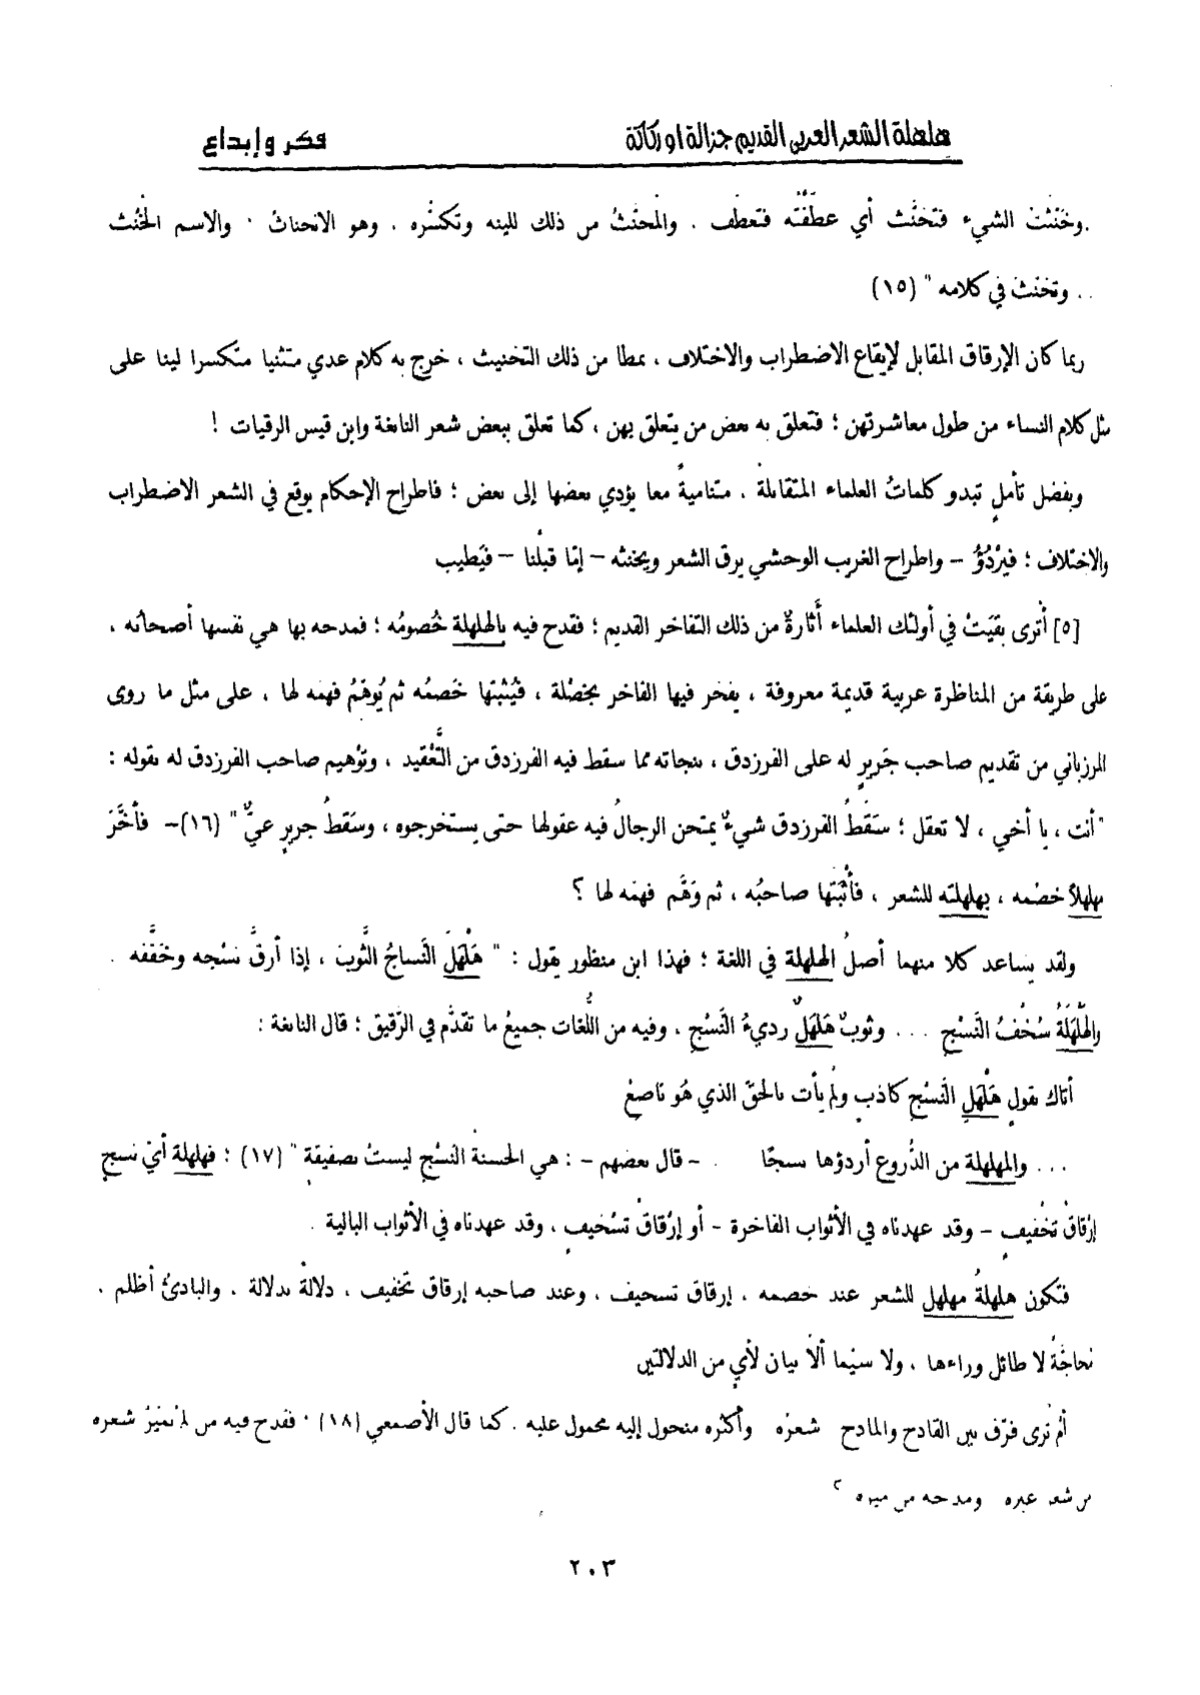 هلهلة الشعر العربى القديم جزالة او ركاكة
فكر وإبداع
.وخَنَثْتُ الشيء فتَخنَّث أي عطَّفْتُه فتعطّف . والمخنّثُ من ذلك للينه وتكسُّره . وهو الانخناثُ . والاسم الخُنْث
.. وتخنّث في كلامه " (١٥)
ربما كان الإرقاق المقابل لإيقاع الاضطراب والاختلاف ، نمطا من ذلك التخنيث ، خرج به كلام عدي متثنيا متكسرا لينا على
مثل كلام النساء من طول معاشرتهن ؛ فتعلق به بعض من يتعلق بهن ، كما تعلق ببعض شعر النابغة وابن قيس الرقيات !
وبفضل تأملٍ تبدو كلماتُ العلماء المتقابلة ، متناميةً معا يؤدي بعضها إلى بعض ؛ فاطراح الإحكام يوقع في الشعر الاضطراب
والاختلاف ؛ فيَرْدُؤُ – واطراح الغريب الوحشي يرق الشعر ويخنثه – إمّا قبلْنا – فيَطيب
[٥] أترى بقيَتْ في أولئك العلماء أَثارةٌ من ذلك التفاخر القديم ؛ فقدح فيه بالهلهلة خُصومُه ؛ فمدحه بها هي نفسها أصحابُه ،
على طريقة من المناظرة عربية قديمة معروفة ، يفخر فيها الفاخر بخصْلة ، فيُثبتها خَصمُه ثم يُوهّمُ فهمَه لها ، على مثل ما روى
المرزباني من تقديم صاحب جَريرٍ له على الفرزدق ، بنجاته مما سقط فيه الفرزدق من التَّعْقيد ، وتوْهيم صاحب الفرزدق له بقوله :
"أنت ، يا أخي ، لا تعقل ؛ سَقَطُ الفرزدق شيءٌ يمتحن الرجالُ فيه عقولها حتى يستخرجوه ، وسَقَطُ جريرٍ عيٌّ " (١٦)– فأخَّرَ
مهلهلاً خصْمه ، بهلهلته للشعر ، فأَثْبَتَها صاحبُه ، ثم وَهَّم فهمَه لها ؟
ولقد يساعد كلا منهما أصلُ الهلهلة في اللغة ؛ فهذا ابن منظور يقول : " هَلْهَلَ النَّساجُ الثَّوبَ ، إذا أرقَّ نسْجه وخَفَّفه .
والهَلْهَلَةُ سُخْفُ النَّسْجِ ... وثوبٌ هَلهَلٌ رديءُ النَّسْج ، وفيه من اللُّغات جميعُ ما تقدَّم في الرَّقيق ؛ قال النابغة :
أتاك بقولٍ هَلْهَلِ النَّسْجِ كاذبٍ ولم يأت بالحقّ الذي هُو ناصعُ
... والمهلهلة من الدُّروع أردؤها نسجًا . – قال بعضهم – : هي الحسنةُ النَّسْج ليستْ بصفيقةٍ " (١٧) ؛ فهلهلة أيّ نسجٍ
إرْقاقُ تخْفيفٍ – وقد عهدناه في الأثواب الفاخرة – أو إرْقاقُ تسْخيفٍ ، وقد عهدناه في الأثواب البالية .
فتكون هلهلةُ مهلهل للشعر عند خصمه ، إرقاق تسخيف ، وعند صاحبه إرقاق تخفيف ، دلالةً بدلالة ، والبادئُ أظلم .
نحاجُّةٌ لا طائل وراءها ، ولا سيّما ألاّ بيان لأيٍ من الدلالتين
أم تُرى فرّق بين القادح والمادح شعرُه وأكثره منحول إليه محمول عليه . كما قال الأصمعي (١٨) . فقدح فيه من لم يُميّزْ شعره
من شعر غيره ومدحه من ميزه ؟
٢٠٣